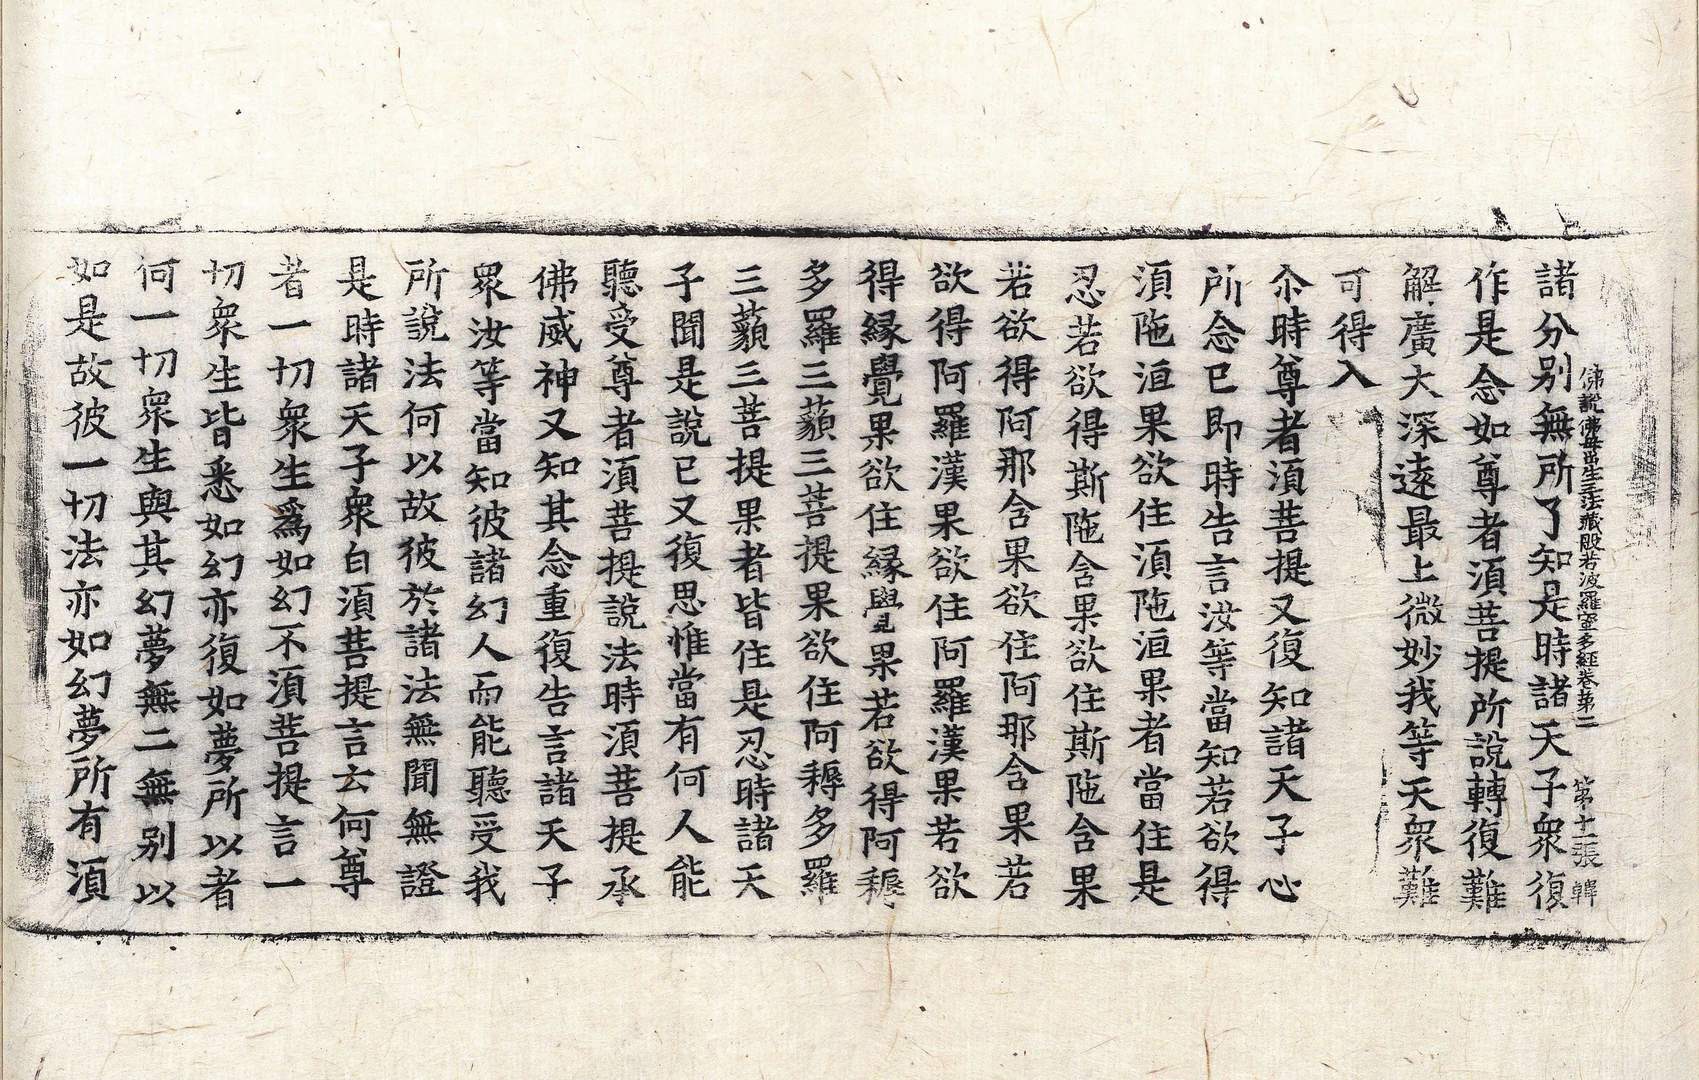 佛說佛母出生三法藏般若波羅蜜多經卷第二 第十一張 韓
諸分別無所了知是時諸天子衆復
作是念如尊者湏菩提所說轉復難
解廣大深遠最上微妙我等天衆難
可得入
尒時尊者湏菩提又復知諸天子心
所念已即時告言汝等當知若欲得
湏陁洹果欲住湏陁洹果者當住是
忍若欲得斯陁含果欲住斯陁含果
若欲得阿那含果欲住阿那含果若
欲得阿羅漢果欲住阿羅漢果若欲
得緣覺果欲住緣覺果若欲得阿耨
多羅三藐三菩提果欲住阿耨多羅
三藐三菩提果者皆住是忍時諸天
子聞是說已又復思惟當有何人能
聽受尊者湏菩提說法時湏菩提承
佛威神又知其念重復告言諸天子
衆汝等當知彼諸幻人而能聽受我
所說法何以故彼於諸法無聞無證
是時諸天子衆白湏菩提言云何尊
者一切衆生爲如幻不湏菩提言一
切衆生皆悉如幻亦復如夢所以者
何一切衆生與其幻夢無二無別以
如是故彼一切法亦如幻夢所有湏